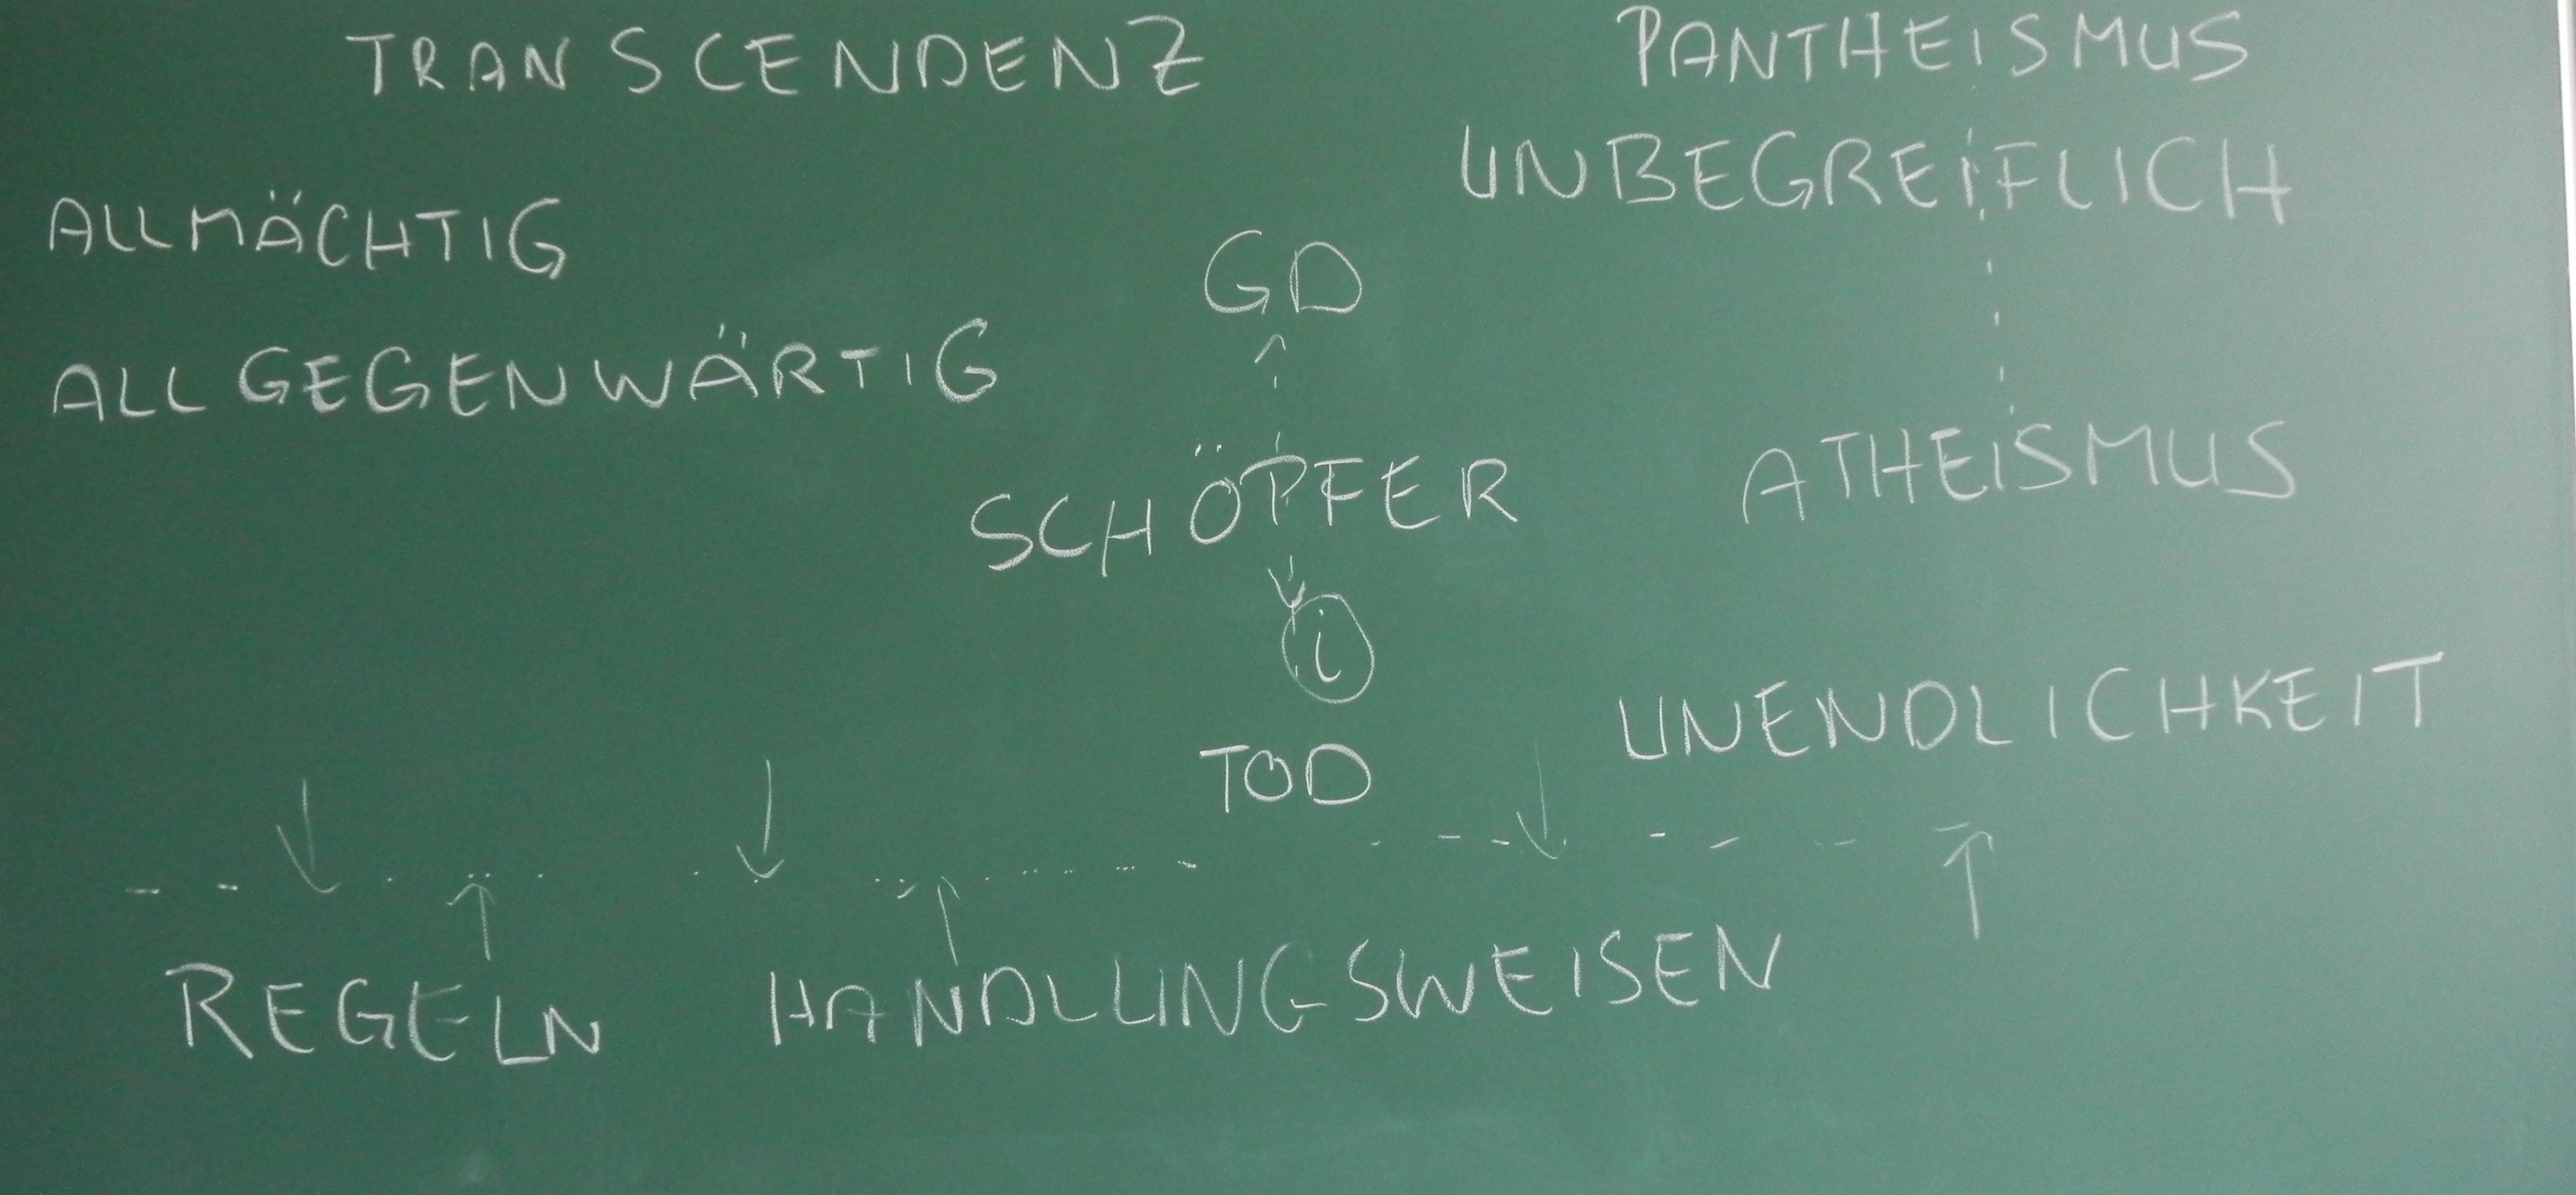 TRANSCENDENZ
PANTHEISMUS
UNBEGREIFLICH
ALLMÄCHTIG
GD
ALLGEGENWÄRTIG
SCHÖPFER
ATHEISMUS
i
UNENDLICHKEIT
TOD
REGELN HANDLUNGSWEISEN